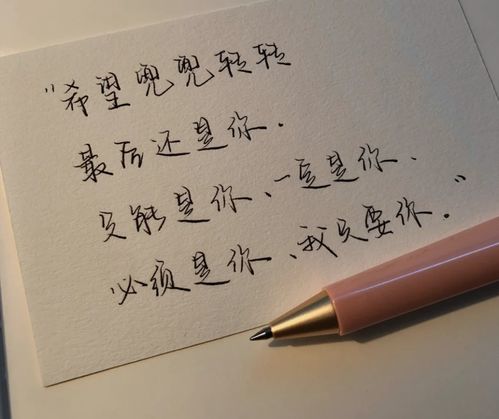 “希望兜兜转转
最后还是你.
只能是你、一直是你.
必须是你、我只要你.”